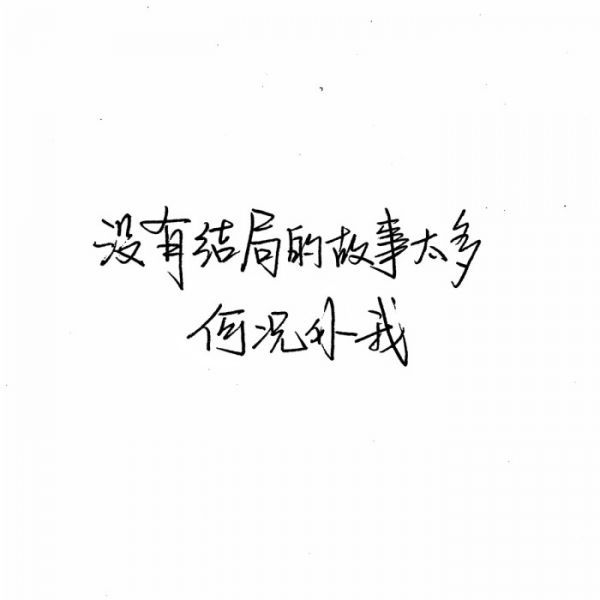 没有结局的故事太多
何况你我